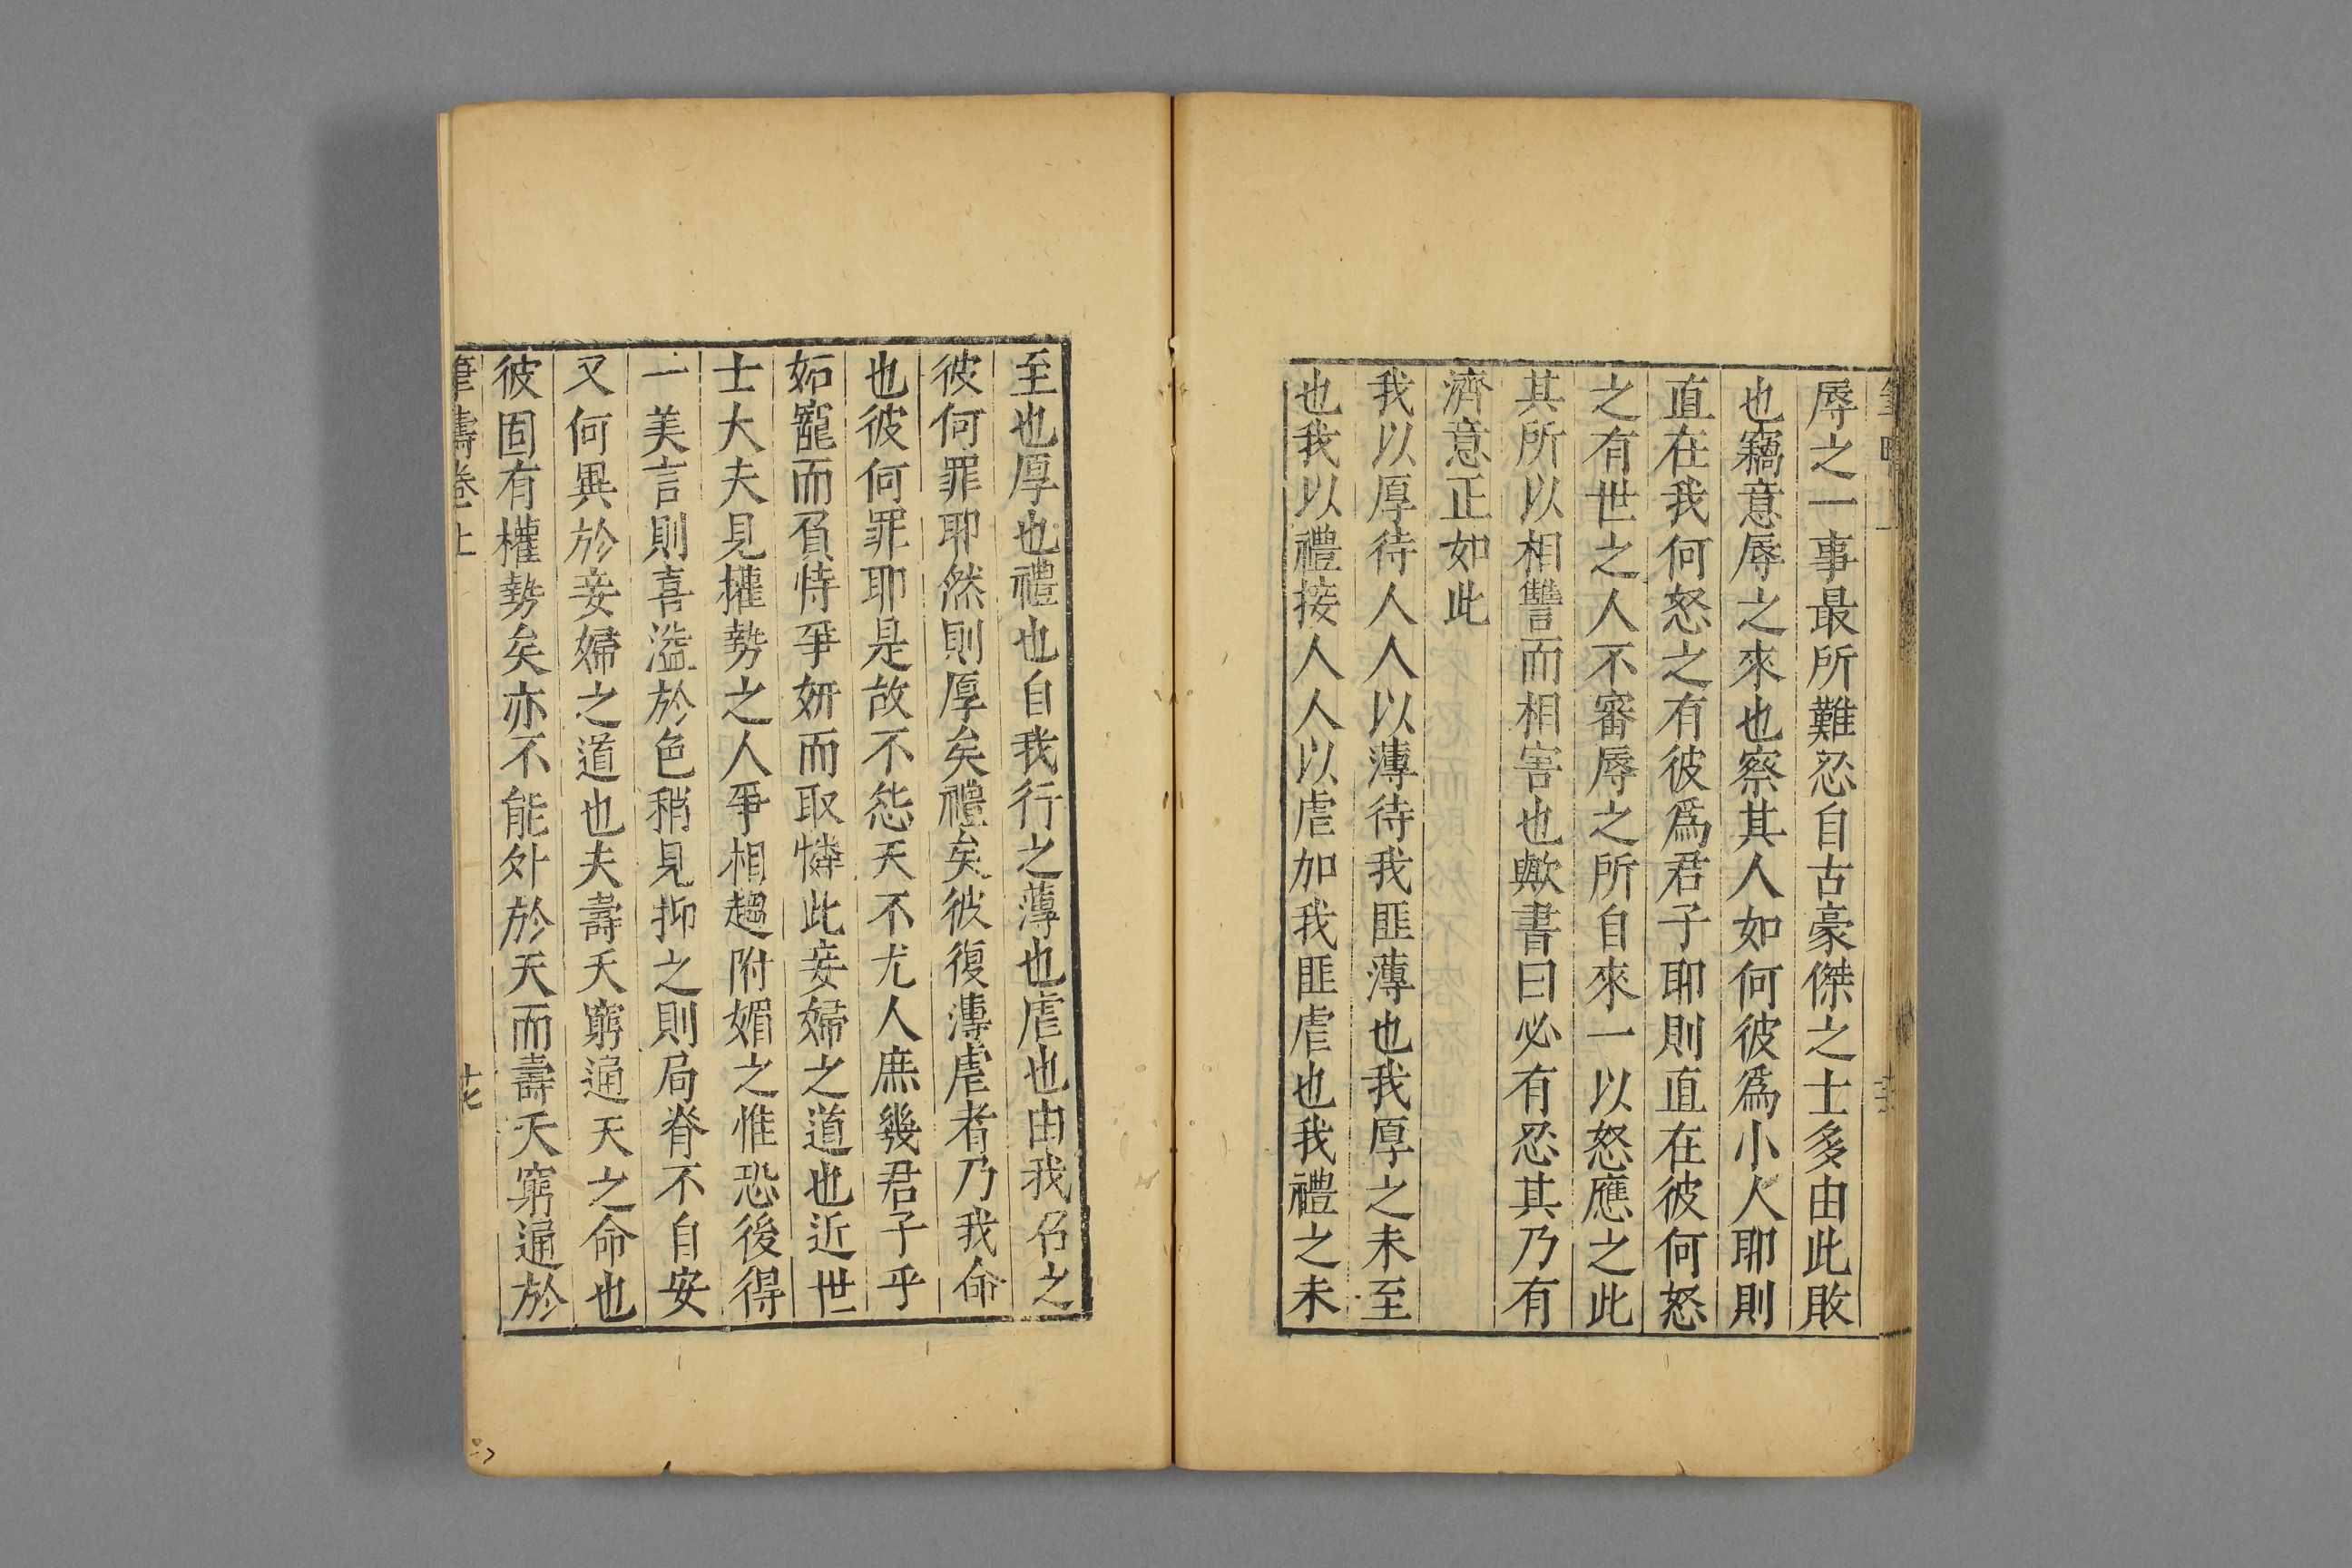 辱之一事最所難忍自古豪傑之士多由此敗
也竊意辱之來也察其人如何彼爲小人耶則
直在我何怒之有彼爲君子耶則直在彼何怒
之有世之人不審辱之所自來一以怒應之此
其所以相讐而相害也歟書曰必有忍其乃有
濟意正如此
我以厚待人人以薄待我匪薄也我厚之未至
也我以禮接人人以虐加我匪虐也我禮之未
至也厚也禮也自我行之薄也虐也由我召之
彼何罪耶然則厚矣禮矣彼復薄虐者乃我命
也彼何罪耶是故不怨天不尤人庶幾君子乎
如寵而負恃爭妍而取憐此妾婦之道也近世
士大夫見權勢之人爭相趨附媚之惟恐後得
一美言則喜溢於色稍見抑之則局脊不自安
又何異於妾婦之道也夫壽夭窮通天之命也
彼固有權勢矣亦不能外於天而壽夭窮通於
筆疇卷上